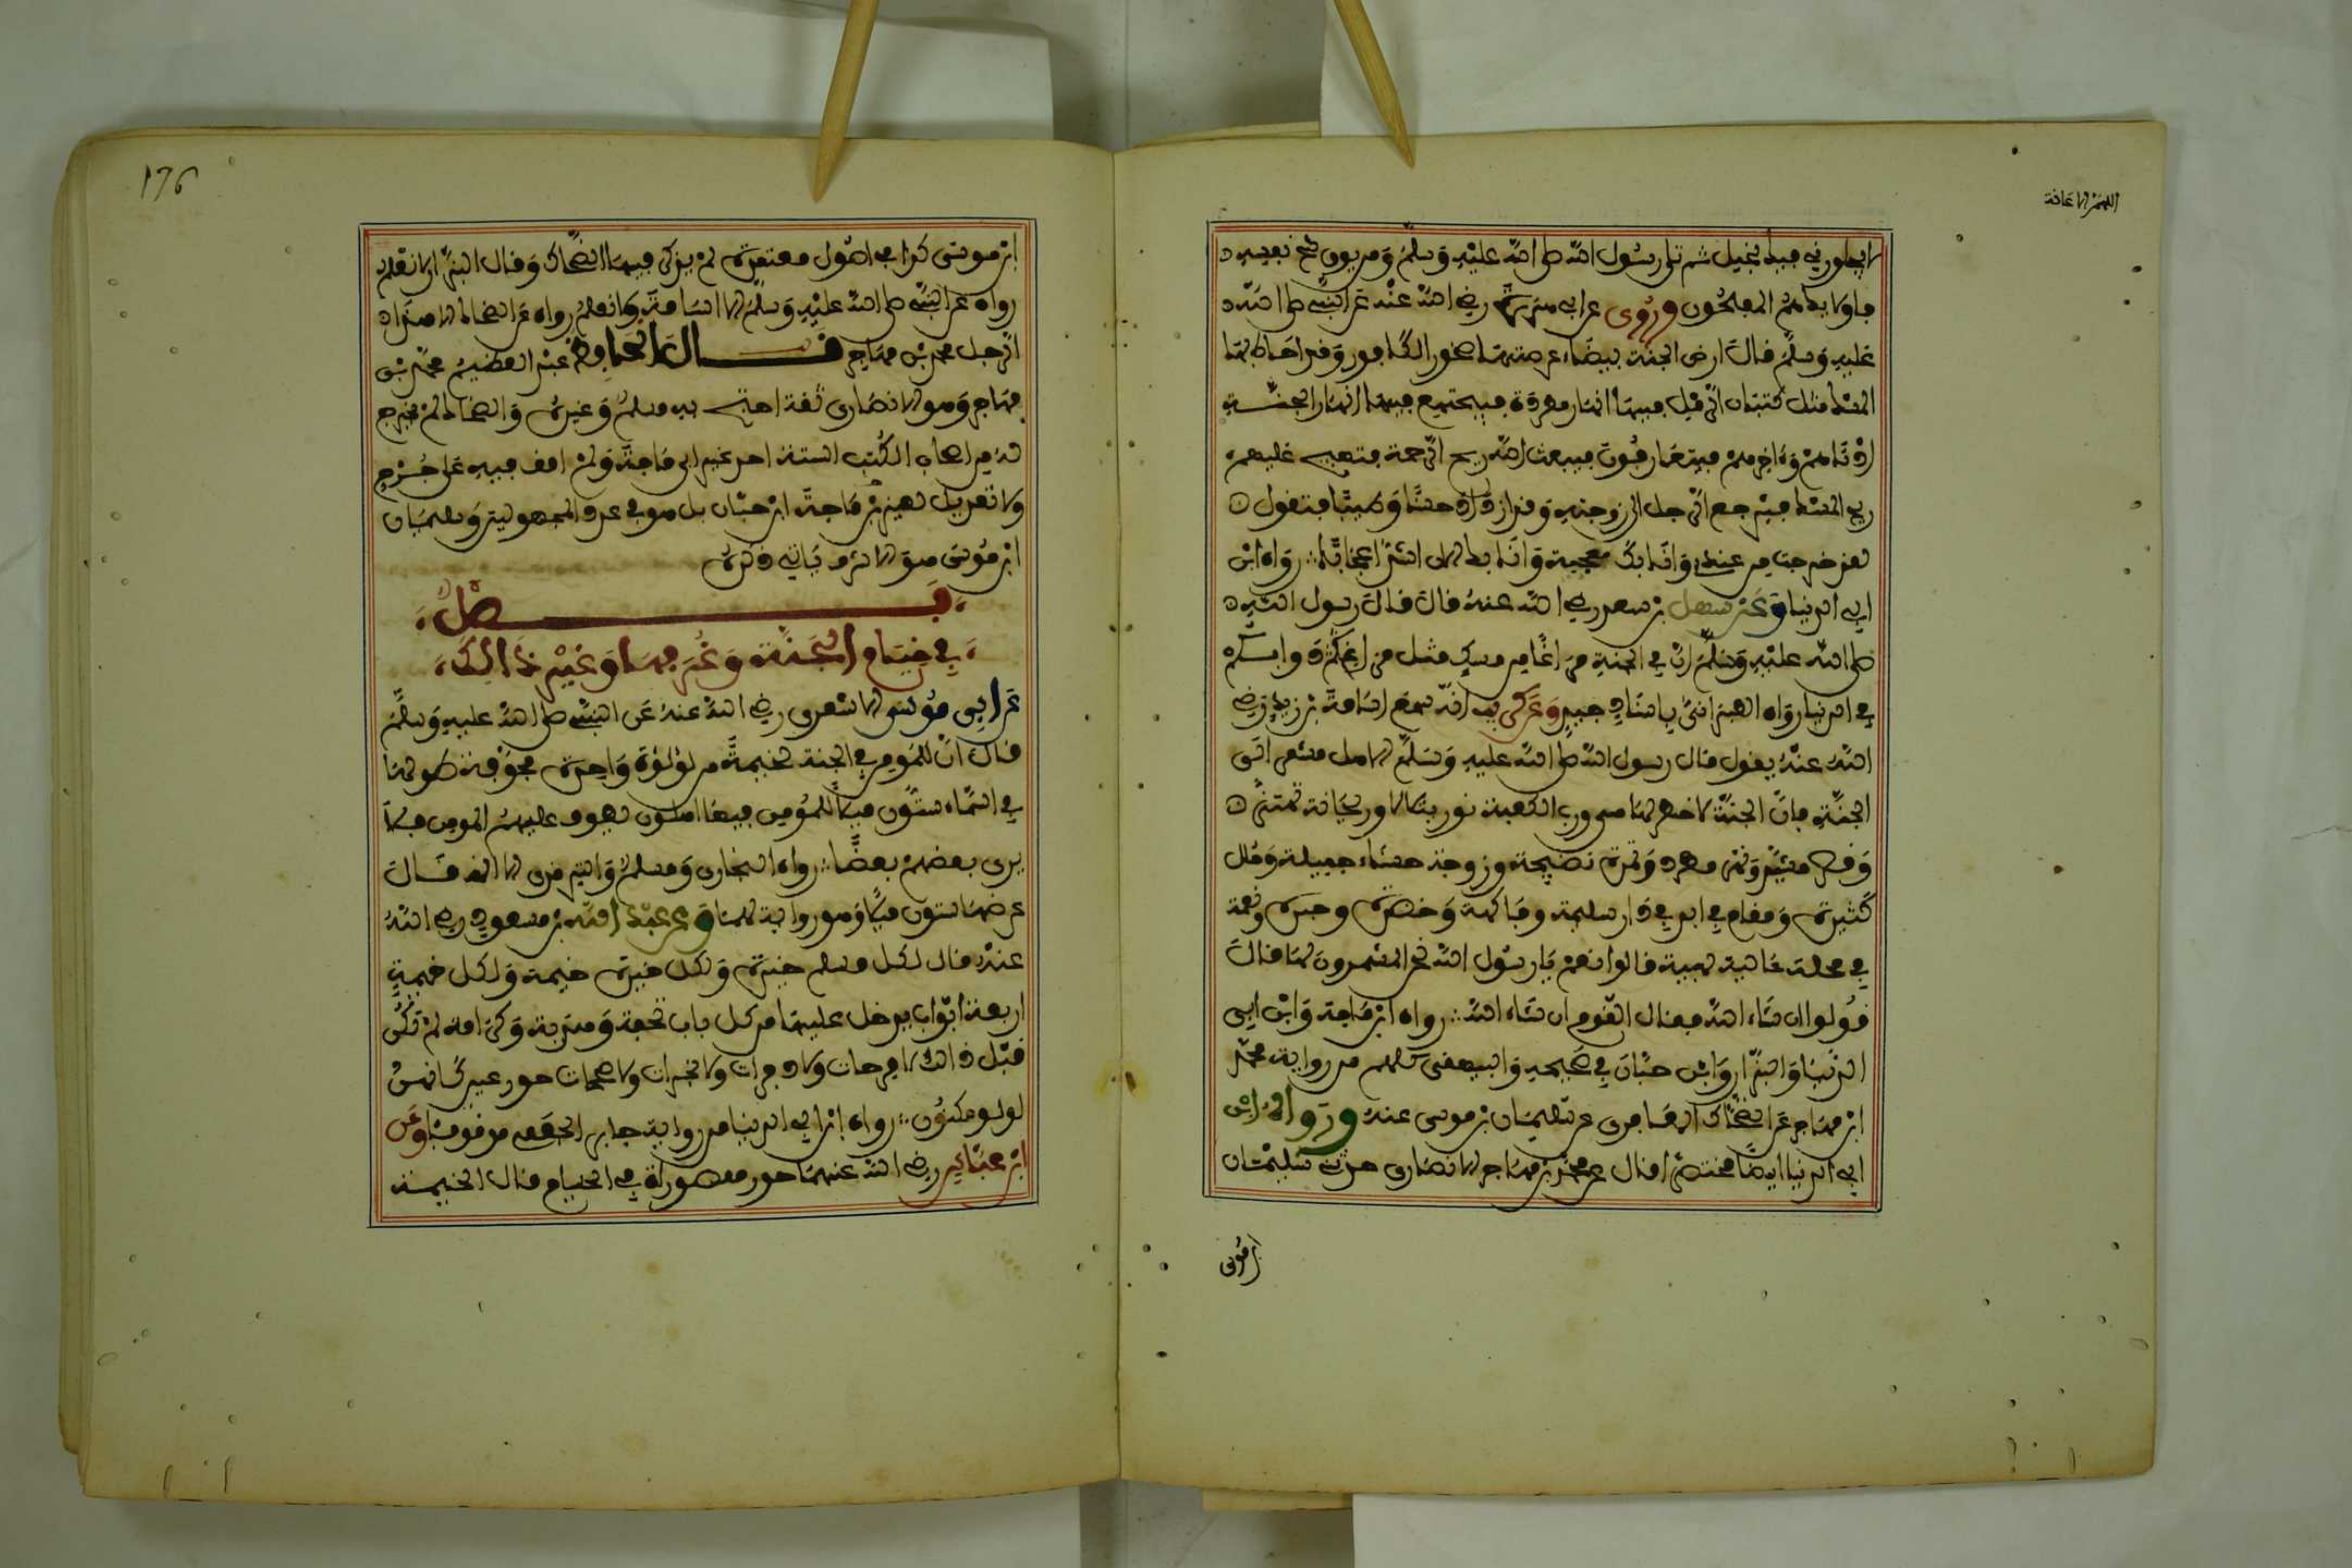 اللهم الاعانة
لا يجاورني فيك بخيل ثم تلى رسول الله صلى الله عليه وسلم ومن يوق شح نفسه
فاولائك هم المفلحون وروي عن ابي هريرة رضي الله عنه عن النبي صلى الله
عليه وسلم قال ارض الجنة بيضاء عرصتها صخور الكافور وقد احاط بها
المسك مثل كثبان الرمل فيها انهار مطردة فيجتمع فيها الجنة
ادناهم وءاخرهم فيتعارفون فيبعث الله ريح الرحمة فتهيج عليهم
ريح المسك فيرجع الرجل الى زوجته وقد ازداد حسنا وطيبا فتقول
لقد خرجت من عندي وانا بك معجبة وانا بك الان اشد اعجابا رواه ابن
ابي الدنيا وعن سهل بن سعد رضي الله عنه قال قال رسول الله
صلى الله عليه وسلم ان في الجنة مراغا من مسك مثل مراغ دوابكم
في الدنيا رواه الطبراني باسناد جيد وعن كريب انه سمع اسامة بن زيد رضي
الله عنه يقول قال رسول الله صلى الله عليه وسلم الا هل مشمر الى
الجنة فان الجنة لا خطر لها هي ورب الكعبة نور يتلالا وريحانة تهتز
وقصر مشيد ونهر مطرد وثمرة نضيجة وزوجة حسناء جميلة وحلل
كثيرة ومقام في ابد في دار سليمة وفاكهة وخضرة وحبرة ونعمة
في محلة عالية بهية قالوا نعم يا رسول الله نحن المشمرون لها قال
قولوا ان شاء الله فقال القوم ان شاء الله رواه ابن ماجة وابن ابي
الدنيا والبزار وابن حبان في صحيحه والبيهقي كلهم من رواية محمد
ابن مهاجر عن الضحاك المعافري عن سليمان بن موسى عنه ورواه ابن
ابي الدنيا ايضا مختصرا قال عن محمد بن مهاجر الانصاري حدثني سليمان
ابن موسى
176
ابن موسى كذا في اصول معتمدة لم يذكر فيها الضحاك وقال البزار لا نعلم
رواه عن النبي صلى الله عليه وسلم الا اسامة ولا نعلم رواه عن الضحاك الا هذا
الرجل محمد بن مهاجر قال الحافظ عبد العظيم محمد بن
مهاجر وهو الانصاري ثقة احتج به مسلم وغيره والضحاك لم يخرج
له من اصحاب الكتب الستة احد غير ابن ماجة ولم اقف فيه على جرح
ولا تعديل لغير ابن ماجة ابن حبان بل هو في عداد المجهولين وسليمان
ابن موسى هو الاشدق ياتي ذكره
فصل
في خيام الجنة وغرفها وغير ذالك
عن ابي موسى الاشعري رضي الله عنه عن النبي صلى الله عليه وسلم
قال ان للمومن في الجنة لخيمة من لؤلؤة واحدة مجوفة طولها
في السماء ستون ميلا للمؤمن فيها اهلون يطوف عليهم المومن فلا
يرى بعضهم بعضا رواه البخاري ومسلم والترمذي الا انه قال
عرضها ستون ميلا وهو رواية لهما وعن عبد الله بن مسعود رضي الله
عنه قال لكل مسلم خيرة ولكل خيرة خيمة ولكل خيمة
اربعة ابواب يدخل عليها من كل باب تحفة وهدية وكرامة لم تكن
قبل ذالك لا مرحات ولا دفرات ولا بخرات ولا طمحات حور عين كانهن
لولو مكنون رواه ابن ابي الدنيا من رواية جابر الجعفي موقوفا وعن
ابن عباس رضي الله عنهما حور مقصورات في الخيام قال الخيمة